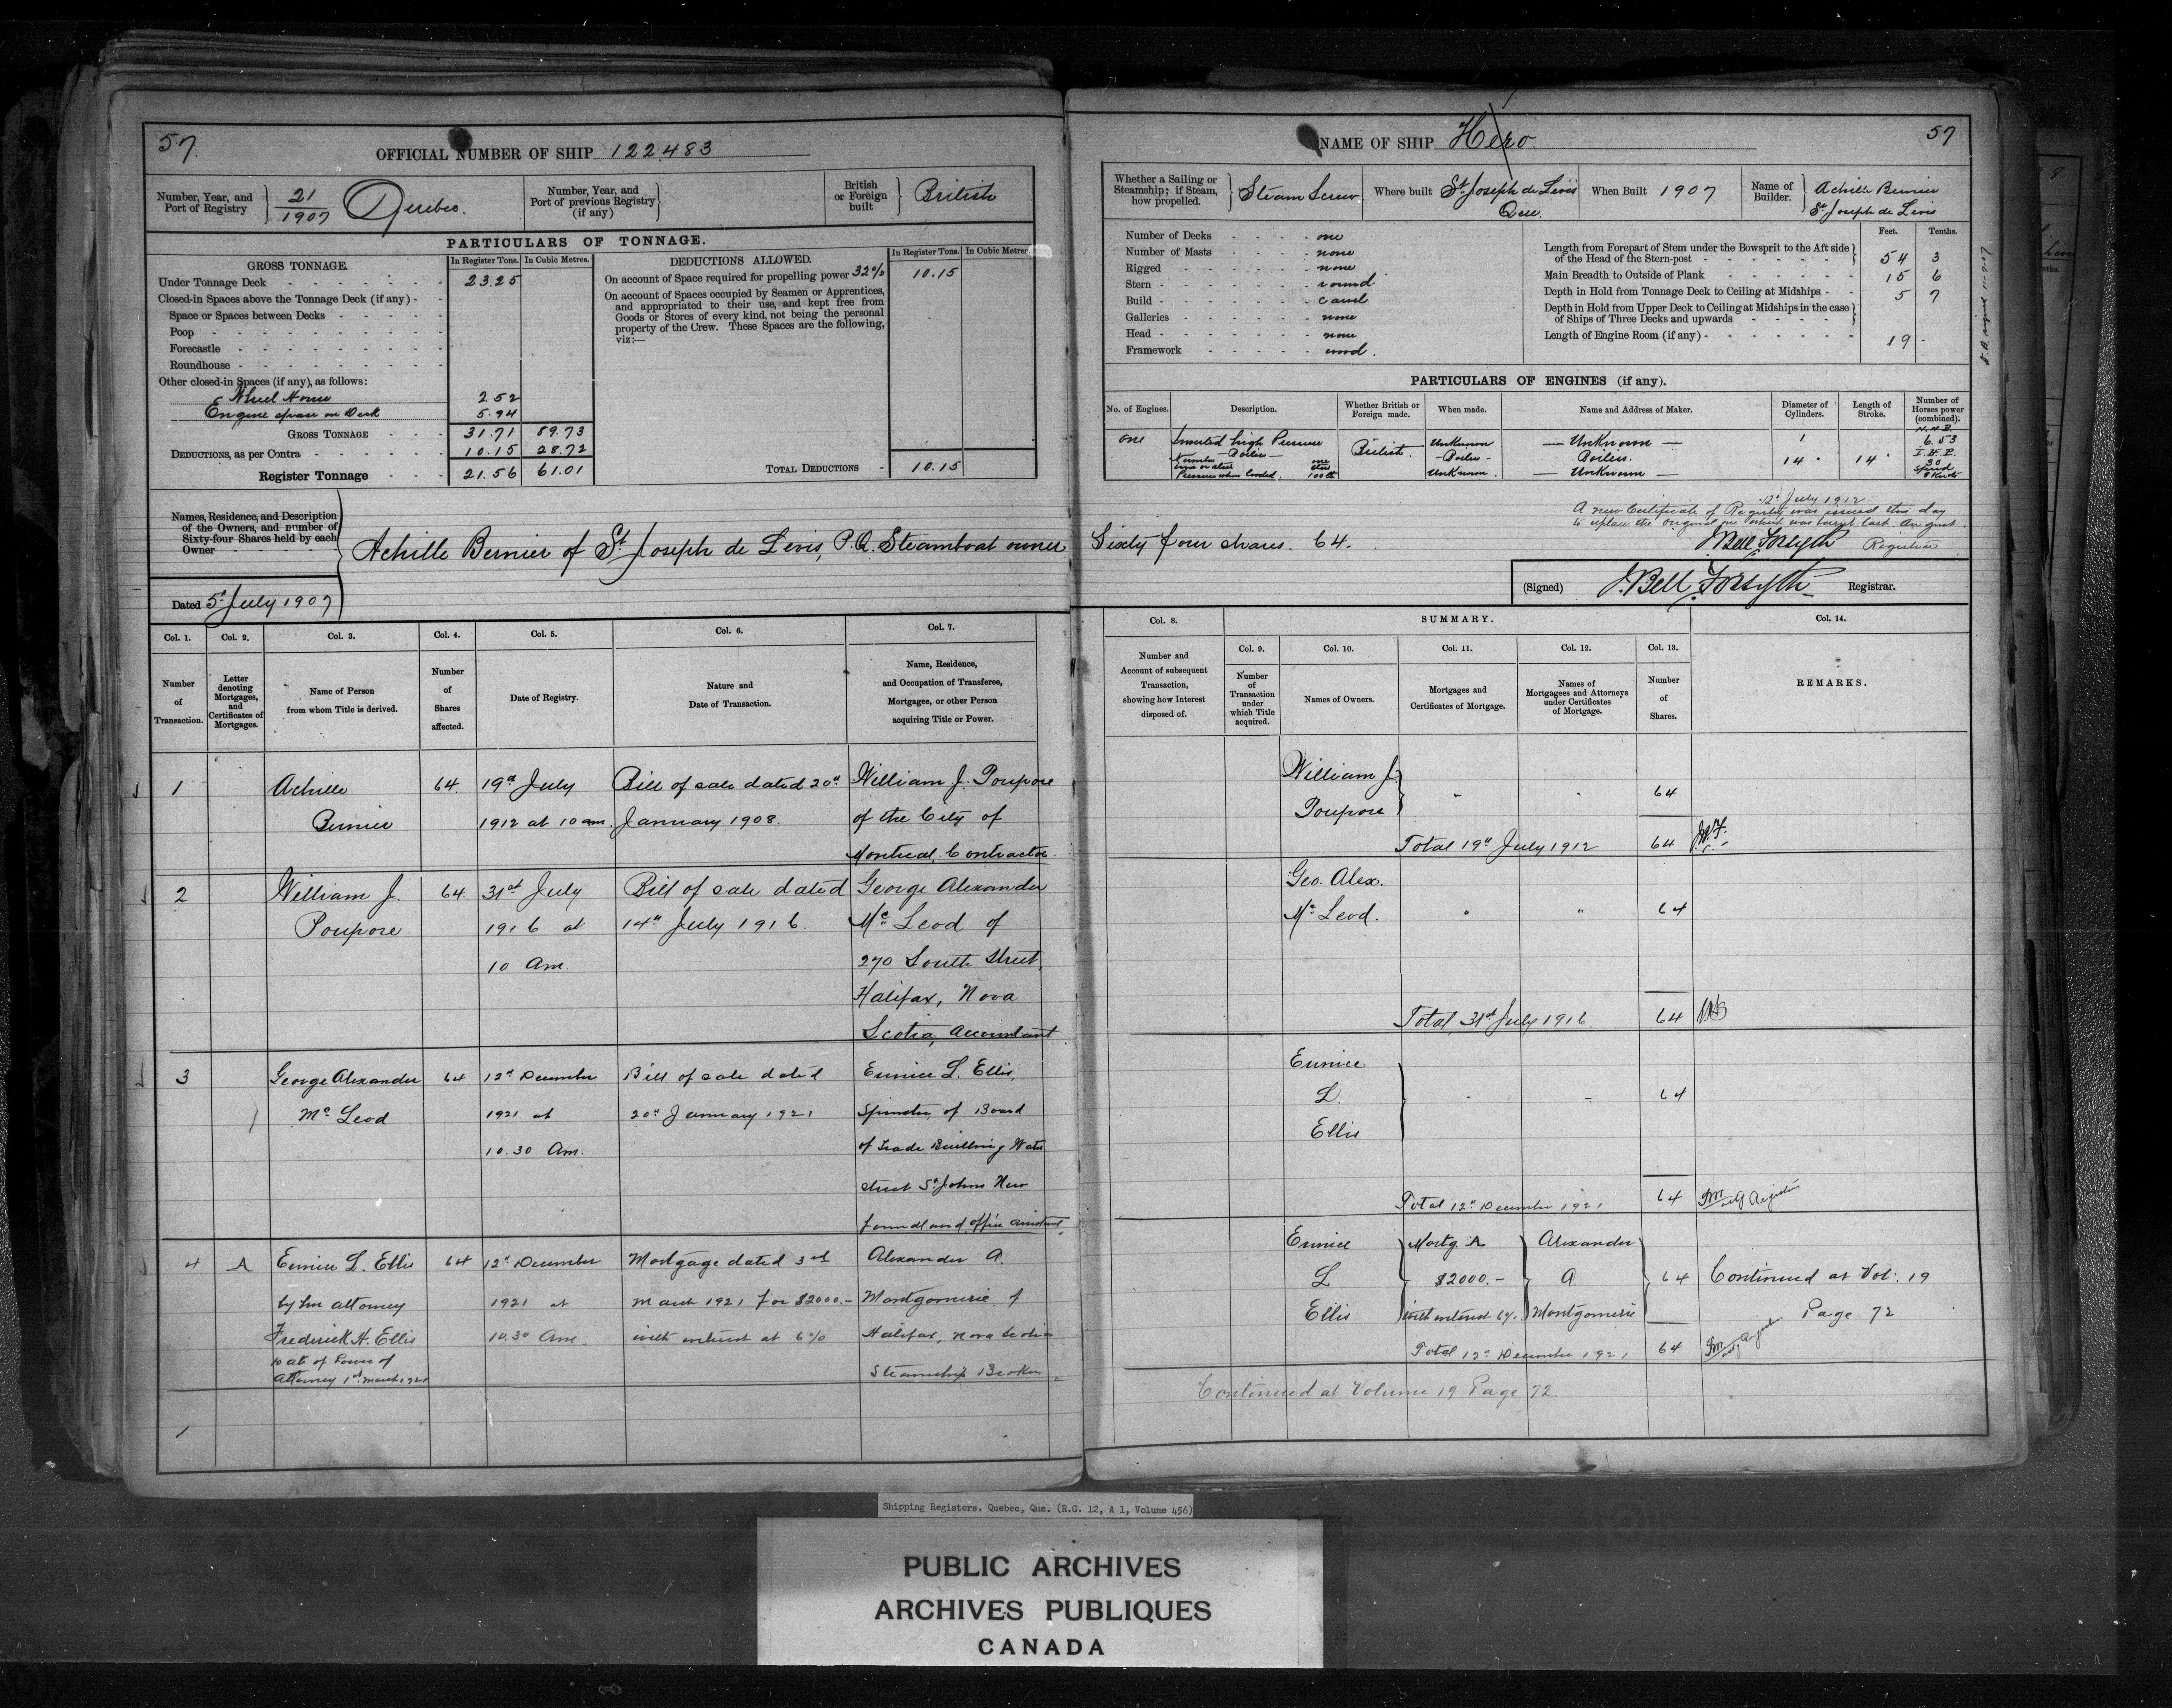 57.
OFFICIAL NUMBER OF SHIP 122483
Number, Year, and Port of Registry 21/1907 Quebec.
Number, Year, and Port of previous Registry (if any)
British or Foreign built British
PARTICULARS OF TONNAGE.
GROSS TONNAGE. In Register Tons. In Cubic Metres.
Under Tonnage Deck 23.25
Closed-in Spaces above the Tonnage Deck (if any)
Space or Spaces between Decks
Poop
Forecastle
Roundhouse
Other closed-in Spaces (if any), as follows:
Wheel House 2 52
Engine space on Deck 5.94
GROSS TONNAGE 31.71 89.73
DEDUCTIONS, as per Contra 10.15 28.72
Register Tonnage 21.56 61.01
DEDUCTIONS ALLOWED. In Register Tons. In Cubic Metres.
On account of Space required for propelling power 32% 10.15
On account of Spaces occupied by Seamen or Apprentices,
and appropriated to their use, and kept free from
Goods or Stores of every kind, not being the personal
property of the Crew. These Spaces are the following,
viz:—
TOTAL DEDUCTIONS 10.15
Names, Residence, and Description
of the Owners, and number of
Sixty-four Shares held by each
Owner
Achille Bernier of St Joseph de Levis, P.Q. Steamboat owner
Dated 5th July 1907
Col. 1. Col. 2. Col. 3. Col. 4. Col. 5. Col. 6. Col. 7.
Number of Transaction.
Letter denoting Mortgages, and Certificates of Mortgages.
Name of Person from whom Title is derived.
Number of Shares affected.
Date of Registry.
Nature and Date of Transaction.
Name, Residence, and Occupation of Transferee, Mortgagee, or other Person acquiring Title or Power.
1 Achille 64. 19th July Bill of sale dated 20th William J. Poupore
Bernier 1912 at 10 am. January 1908. of the City of
Montreal, Contractor.
2 William J. 64. 31st July Bill of sale dated George Alexander
Poupore 1916 at 14th July 1916. Mc Leod of
10 Am. 270 South Street,
Halifax, Nova
Scotia, Accountant.
3 George Alexander 64 12th December Bill of sale dated Eunice L. Ellis,
Mc Leod 1921 at 20th January 1921 Spinster, of Board
10.30 Am. of Trade Building Water
street St Johns New
foundland, office assistant
4 A Eunice L. Ellis 64 12th December Mortgage dated 3rd Alexander A.
by her attorney 1921 at March 1921 for $2000.- Montgomerie of
Frederick H. Ellis 10.30 Am. with interest at 6% Halifax, Nova Scotia
Date of Power of Steamship Broker
Attorney 1st March 1921
57
NAME OF SHIP Hero.
Whether a Sailing or Steamship; if Steam, how propelled. Steam Screw
Where built St Joseph de Levis Que.
When Built 1907
Name of Builder. Achille Bernier
St Joseph de Levis
Number of Decks one
Number of Masts none
Rigged none
Stern round
Build carvel
Galleries none
Head none
Framework wood.
Feet. Tenths.
Length from Forepart of Stem under the Bowsprit to the Aft side
of the Head of the Stern-post 54 3
Main Breadth to Outside of Plank 15 6
Depth in Hold from Tonnage Deck to Ceiling at Midships 5 7
Depth in Hold from Upper Deck to Ceiling at Midships in the case
of Ships of Three Decks and upwards
Length of Engine Room (if any) 19 -
PARTICULARS OF ENGINES (if any).
No. of Engines. Description. Whether British or Foreign made. When made. Name and Address of Maker. Diameter of Cylinders. Length of Stroke. Number of Horses power (combined).
one Inverted high Pressure British. Unknown — Unknown — 1 N.H.P. 6.53
— Boiler — - Boiler - Boiler. 14" 14" I.H.P. 30
Number one
Iron or steel steel
Pressure when loaded. 100 lb Unknown. — Unknown — Speed 8 Knots
12th July 1912
A new Certificate of Registry was issued this day
to replace the original one which was burnt last August.
J. Bell Forsyth Registrar
Sixty four shares. 64.
(Signed) J. Bell Forsyth Registrar.
Col. 8. SUMMARY. Col. 14.
Col. 9. Col. 10. Col. 11. Col. 12. Col. 13.
Number and Account of subsequent Transaction, showing how Interest disposed of.
Number of Transaction under which Title acquired.
Names of Owners.
Mortgages and Certificates of Mortgage.
Names of Mortgagees and Attorneys under Certificates of Mortgage.
Number of Shares.
REMARKS.
William J.
Poupore " " 64
Total 19th July 1912 64
Geo. Alex.
Mc Leod. " " 64
Total, 31st July 1916. 64
Eunice
L. - - 64
Ellis
Total 12th December 1921 64
Eunice Mortg. A Alexander
L $2000.- A. 64 Continued at Vol: 19
Ellis with interest 6%. Montgomerie Page 72
Total 12th December 1921 64
Continued at Volume 19 Page 72.
Shipping Registers. Quebec, Que. (R.G. 12, A 1, Volume 456)
PUBLIC ARCHIVES
ARCHIVES PUBLIQUES
CANADA